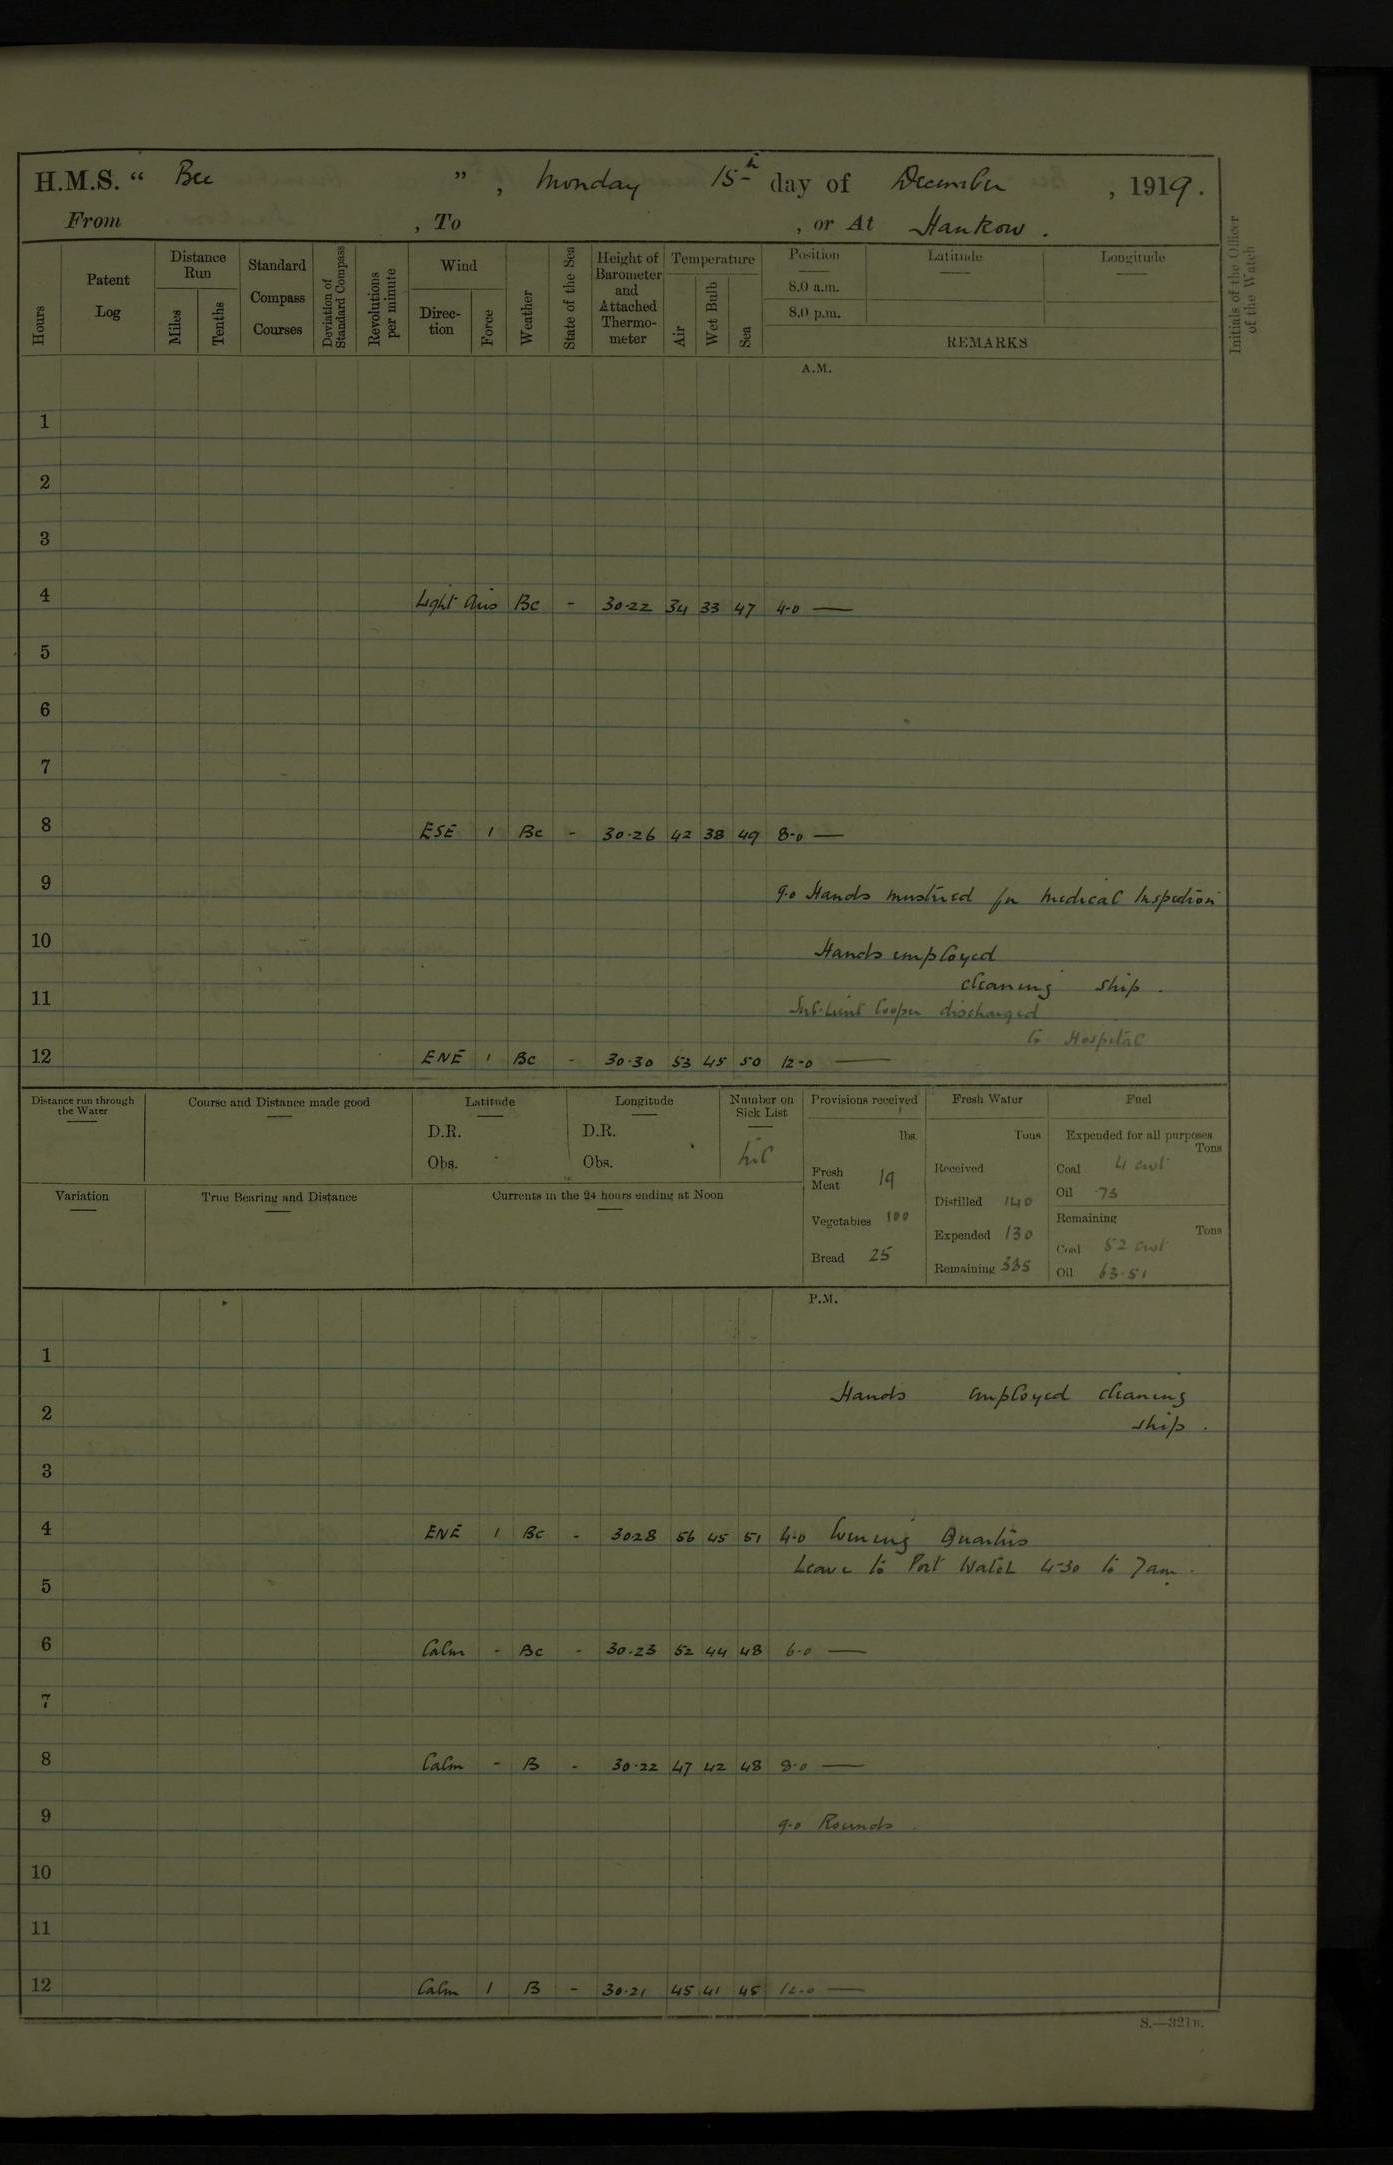 H.M.S. “ Bee ” , Monday 15th day of December , 1919.
From , To , or At Hankow .
Hours
Patent Log
Distance Run
Miles
Tenths
Standard Compass Courses
Deviation of Standard Compass
Revolutions per minute
Wind
Direc- tion
Force
Weather
State of the Sea
Height of Barometer and Attached Thermo- meter
Temperature
Air
Wet Bulb
Sea
Position
8.0 a.m.
8.0 p.m.
Latitude
Longitude
REMARKS
Initials of the Officer of the Watch
A.M.
1
2
3
4 Light Airs Bc - 30.22 34 33 47 4-0 —
5
6
7
8 ESE 1 Bc - 30.26 42 38 49 8-0 —
9 9.0 Hands mustered for medical Inspection
10 Hands employed
cleaning ship .
11 Sub-Lieut Cooper discharged
to Hospital
12 ENE 1 Bc - 30.30 53 45 50 12-0 —
Distance run through the Water
Course and Distance made good
Latitude
D.R.
Obs.
Longitude
D.R.
Obs.
Number on Sick List
Nil
Provisions received
lbs.
Fresh Meat 19
Vegetables 100
Bread 25
Fresh Water
Tons
Received
Distilled 140
Expended 130
Remaining 335
Fuel
Expended for all purposes
Tons
Coal 4 cwt
Oil .73
Remaining
Tons
Coal 52 cwt
Oil 63.51
Variation
True Bearing and Distance
Currents in the 24 hours ending at Noon
P.M.
1
Hands employed cleaning
2 ship .
3
4 ENE 1 Bc - 30.28 56 45 51 4.0 Evening Quarters
Leave to Port Watch 4-30 to 7am .
5
6 Calm - Bc - 30.23 52 44 48 6-0 —
7
8 Calm - B - 30.22 47 42 48 8.0 —
9 9-0 Rounds .
10
11
12 Calm 1 B - 30.21 45 41 45 12-0 —
S.—321B.